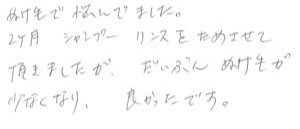 ぬけ毛で悩んでました。
2ヶ月 シャンプー リンスをためさせて
頂きましたが、だいぶん ぬけ毛が
少なくなり、良かったです。